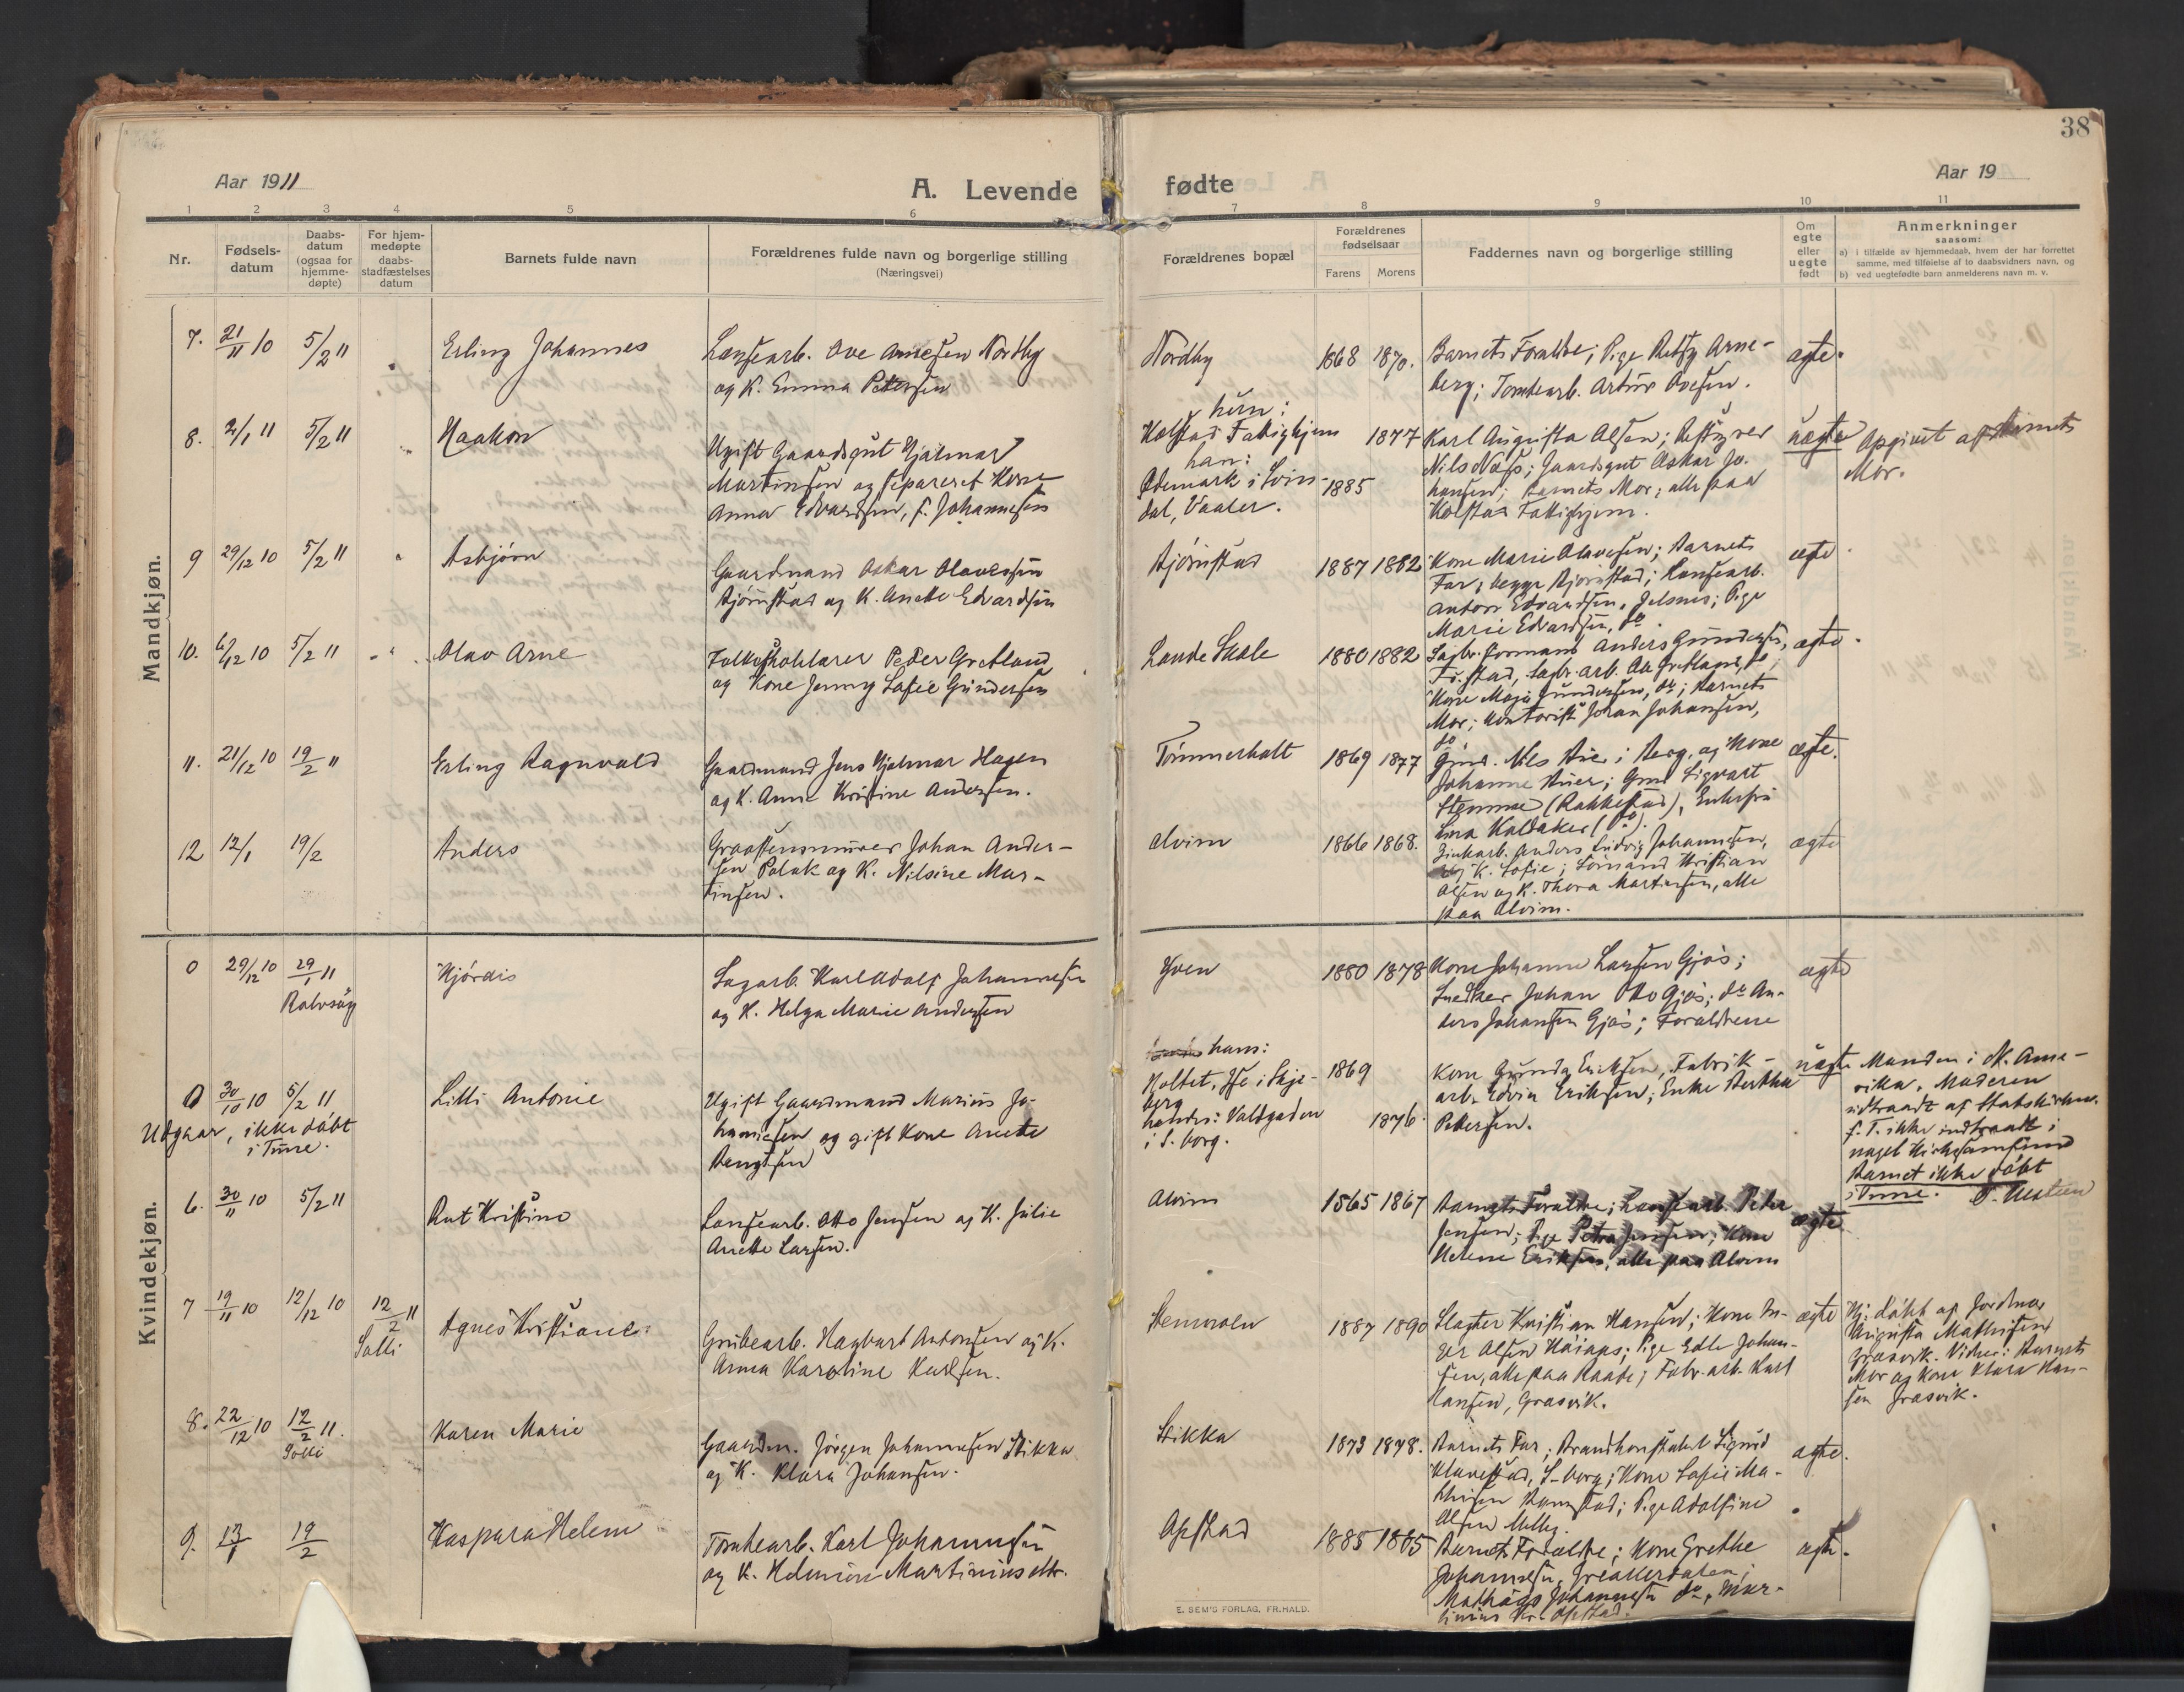 38
Aar 1911
A. Levende
fødte
Aar 19
1 2 3 4 5 6 7 8 9 10 11
Nr.
Fødsels-
datum
Daabs-
datum
(ogsaa for
hjemme-
døpte)
For hjem-
medøpte
daabs-
stadfæstelses
datum
Barnets fulde navn
Forældrenes fulde navn og borgerlige stilling
(Næringsvei)
Forældrenes bopæl
Forældrenes
fødselsaar
Farens Morens
Faddernes navn og borgerlige stilling
Om
egte
eller
uegte
født
Anmerkninger
saasom:
a) i tilfælde av hjemmedaab, hvem der har forrettet
samme, med tilføielse af to daabsvidners navn, og
b) ved uegtefødte barn anmelderens navn m. v.
Mandkjøn.
7. 21/11 10 5/2 11 Erling Johannes
Lensearb. Ove Arnesen Nordby
og K. Emma Pettersen
Nordby 1868 1870.
Barnets Foraldre; Pige Betsy Arne-
berg; Tomtearb. Artur Ovesen.
ægte.
8. 2/1 11 5/2 11 Haakon
Ugift Gaardsgut Hjalmar
Martinsen og separeret Kone
Anna Edvardsen, f. Johannesen
hun:
Kolstad Fattighjem 1877
han:
Ødemark i Svin-
dal, Vaaler. 1885
Karl Augusta Olsen; Bestyrer
Nils Næss; Gaardsgut Oskar Jo-
hansen; Barnets Mor; alle paa
Kolstad Fattighjem.
uægte
Opgivet af Barnets
Mor.
9 29/12 10 5/2 11 Asbjørn
Gaardmand Oskar Olavesen
Bjørnstad og K. Anette Edvardsen
Bjørnstad 1887 1882
Kone Marie Olavesen; Barnets
Far; begge Bjørnstad; Lensearb.
Anton Edvardsen, Jelsnes; Pige
Marie Edvardsen, do.
ægte.
10. 6/12 10 5/2 11 Olav Arne
Folkeskolelærer Peder Gretland
og Kone Jenny Sofie Gundersen
Lande Skole 1880 1882
Sagbr. formand Anders Gundersen,
Fr.stad, Sagbr.arb. Ole Gretland, do;
Kone Maja Gundersen, do; Barnets
Mor; Kontorist Johan Johansen,
do.
ægte.
11. 21/12 10 19/2 11 Erling Ragnvald
Gaardmand Jens Hjalmar Hagen
og K. Anna Kristine Andersen.
Tømmerholt 1869 1877
Johanne
Stemme (Rakkestad),
ægte.
12 12/1 19/2 Anders
Graastensmurer Johan Ander-
sen Polak og K. Nilsine Mar-
tinsen.
Alvim 1866 1868.
Anders Ludvig Johannesen,
og K. Sofie; Kristian
Olsen og K. Thora Martinsen, alle
paa Alvim.
ægte
Kvindekjøn.
0 29/12 10 29/1 11 Hjórdis
Rolvsøy
Sagarb. Karl Adolf Johannesen
og K. Helga Marie Andersen
Hven 1880 1878
Kone Johanne Larsen Gjøs;
Snedker Johan Otto Gjøs; do An-
ders Johansen Gjøs; Foraldrene
ægte
0 30/10 10 5/2 11 Lilli Antonie
Udgaar, ikke døbt
i Tune.
Ugift Gaardmand Marius Jo-
hannesen og gift Kone Anette
Bengtsen
hans:
Holtet, Ise i Skje-
berg 1869
hendes: Valdgaden
i S.borg. 1876.
Kone Gunda Eriksen, Fabrik-
arb. Edvin Eriksen; Enke Bertha
Petersen.
uægte
Manden i N. Ame-
rika. Moderen
udtraadt af Statskirken.
f. T. ikke indtraadt i
noget Kirkesamfund
Barnet ikke døbt
i Tune.
6. 30/11 10 5/2 11 Rut Kristine
Lensearb. Otto Jensen og K. Julie
Anette Larsen.
Alvim 1865 1867
Barnets Foraldre; Lensearb. Peter
Jensen; Pige Petra Jensen; Kone
Helene Eriksen, alle paa Alvim
ægte
7 19/11 10 12/12 10 12/2 11 Agnes Kristiane.
Solli
Grubearb. Hagbart Antonsen og K.
Anna Karoline Karlsen.
1887 1890
Slagter Kristian Hansen; Kone In-
ger Olsen; Pige Edle Johan-
sen, alle paa Raade; Fabr.arb. Karl
Hansen, Græsvik.
ægte
Hj. døbt af Jordmor
Augusta Mathisen
Græsvik. Vidner: Barnets
Mor og Kone Klara Han-
sen Græsvik.
8. 22/12 10 12/2 11. Karen Marie
Solli
Gaardm. Jørgen Johannesen Stikka
og K. Klara Johansen.
Stikka 1873 1878.
Barnets Far; Brandkonstabel Sigurd
S-borg; Kone Sofie Ma-
thisen; Pige Adolfine
Olsen
ægte.
9. 13/1 19/2 Kaspara Helene
Tomtearb. Karl Johannesen
og K. Martiniusdtr.
Opstad 1885 1885
Barnets Foraldre; Kone Grethe
Johannesen, Greakerdalen;
Johannesen do, Mar-
tinius Kr. Opstad.
ægte.
E. SEM'S FORLAG, FR.HALD.